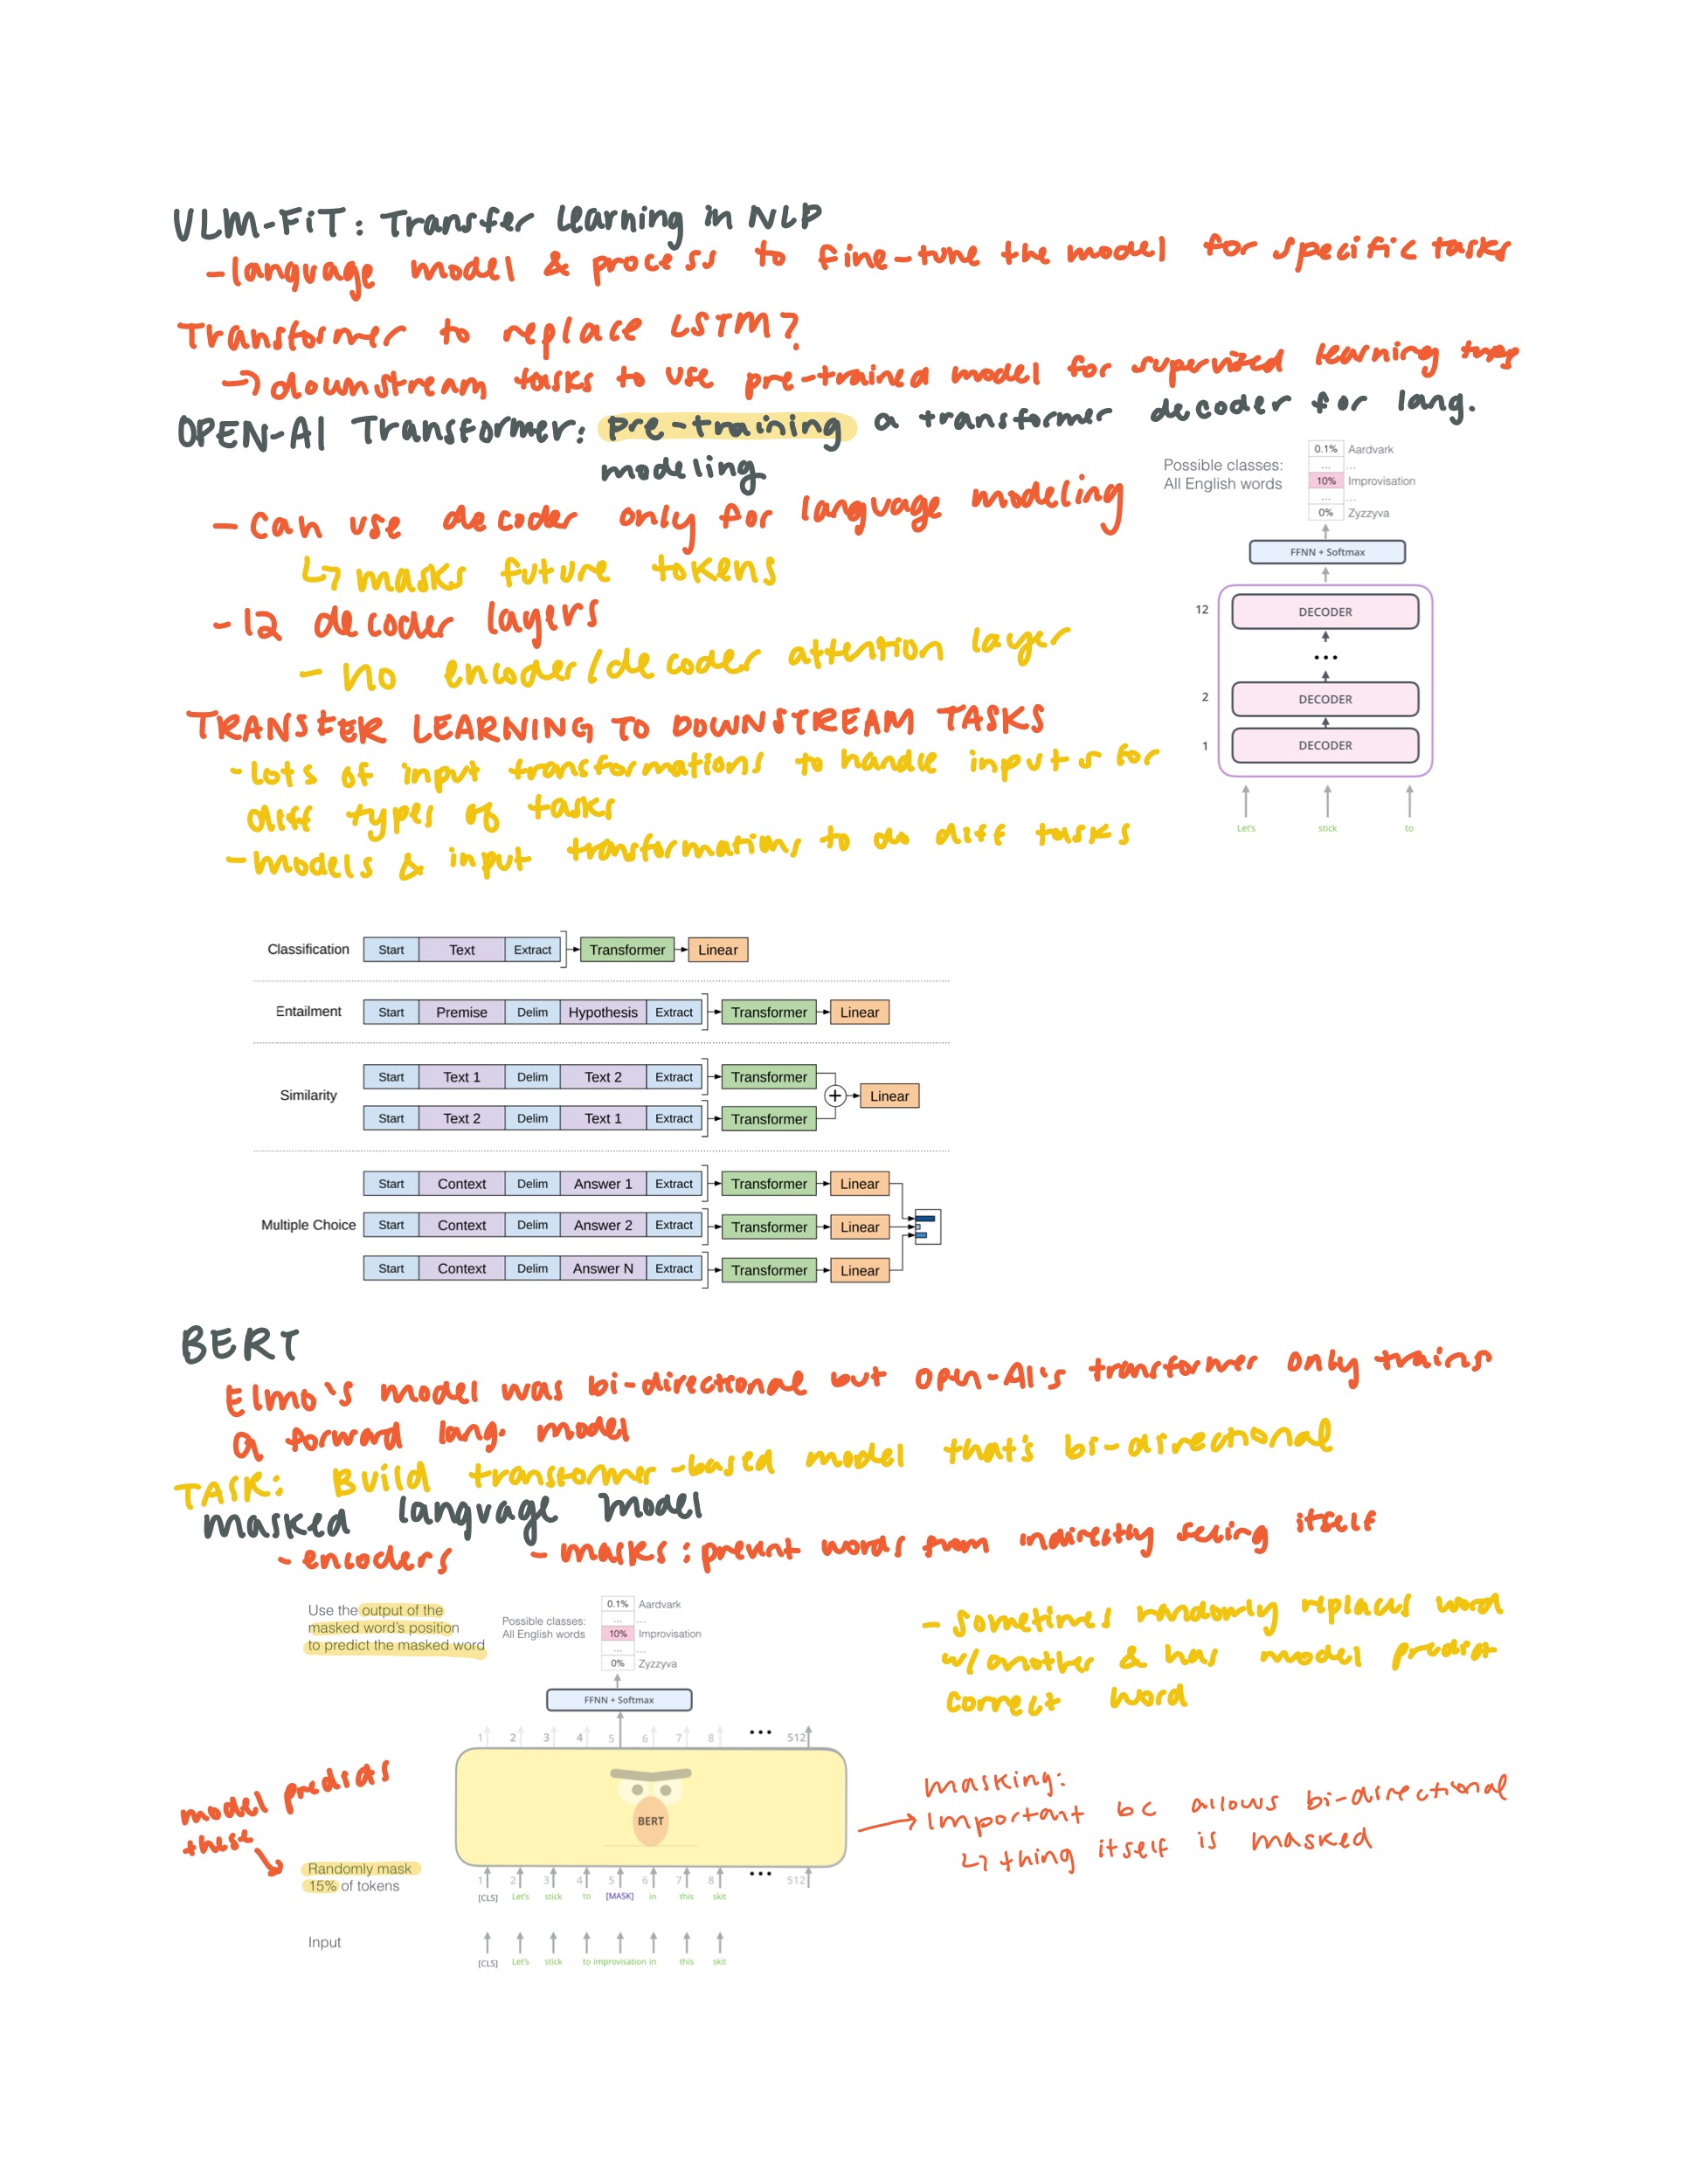 ULM-FiT: Transfer learning in NLP
- language model & process to fine-tune the model for specific tasks
Transformer to replace LSTM?
→ downstream tasks to use pre-trained model for supervised learning
OPEN-AI Transformer: pre-training a transformer decoder for lang.
modeling
- can use decoder only for language modeling
↳ masks future tokens
- 12 decoder layers
- no encoder/decoder attention layer
TRANSFER LEARNING TO DOWNSTREAM TASKS
- lots of input transformations to handle inputs for
diff types of tasks
- models & input transformations to do diff tasks
Possible classes:
All English words
0.1% Aardvark
... ...
10% Improvisation
... ...
0% Zyzzyva
FFNN + Softmax
12 DECODER
...
2 DECODER
1 DECODER
Let's stick to
Classification Start Text Extract Transformer Linear
Entailment Start Premise Delim Hypothesis Extract Transformer Linear
Similarity
Start Text 1 Delim Text 2 Extract Transformer
+ Linear
Start Text 2 Delim Text 1 Extract Transformer
Multiple Choice
Start Context Delim Answer 1 Extract Transformer Linear
Start Context Delim Answer 2 Extract Transformer Linear
Start Context Delim Answer N Extract Transformer Linear
BERT
Elmo's model was bi-directional but open-AI's transformer only trains
a forward lang. model
TASK: Build transformer-based model that's bi-directional
masked language model
- encoders - masks: prevent words from indirectly seeing itself
Use the output of the
masked word's position
to predict the masked word
Possible classes:
All English words
0.1% Aardvark
... ...
10% Improvisation
... ...
0% Zyzzyva
FFNN + Softmax
1 2 3 4 5 6 7 8 ... 512
BERT
1 2 3 4 5 6 7 8 ... 512
[CLS] Let's stick to [MASK] in this skit
Randomly mask
15% of tokens
Input
[CLS] Let's stick to improvisation in this skit
model predicts
these
- sometimes randomly replaces word
w/ another & has model predict
correct word
masking:
→ important bc allows bi-directional
↳ thing itself is masked